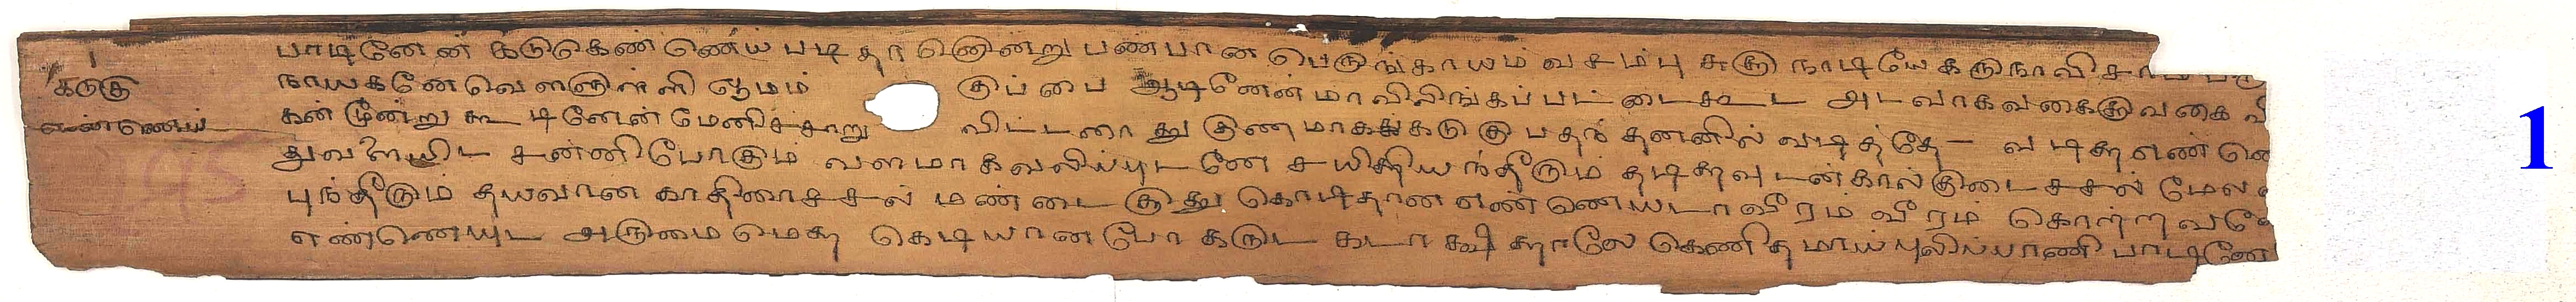 கடுகு
எண்ணெய்
பாடினேன் கடுகெண்ணெய் படிதா னென்று பண்பான பெருங்காயம் வசம்பு சுக்கு நாடியே கருநாவி
நாயகனே வெள்ளுள்ளி ஓமம் குப்பை ஆடினேன் மாவிலிங்கப்பட்டை கூட அடவாகவகைக்கு வகை
கன் மூன்று கூடினேன் மேனிச்சாறு விட்டரைத்து குணமாக கடுகு பதந் தன்னில் வடித்தே வடித்த எண்ணெ
துவளையிட சன்னி போகும் வளமாக வலிப்புடனே சயித்தியந்தீரும் கடித்தவுடன் கால் குடைச்சல் மேல
புந்தீரும் தயவான காதிரைச்சல் மண்டை குத்து கொடிதான எண்ணெயடா வீரம் வீரம் கொற்றவனே
எண்ணெயுட அருமை மெத்த கெடியான போகருட கடாக்ஷத்தாலே கெணிதமாய் புலிப்பாணி பாடினே
195
1